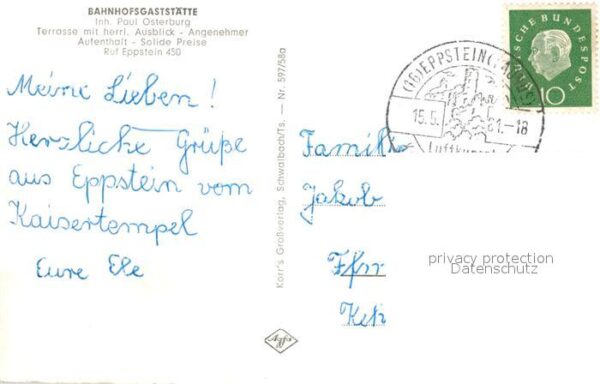 BAHNHOFSGASTSTÄTTE
Inh. Paul Osterburg
Terrasse mit herrl. Ausblick - Angenehmer
Aufenthalt - Solide Preise
Ruf Eppstein 450
Meine Lieben!
Herzliche Grüße
aus Eppstein vom
Kaisertempel
Eure Ele
Korr's Großverlag, Schwalbach/Ts. — Nr. 597/58a
Agfa
(16) EPPSTEIN (TAUNUS)
15.5. 61.-18
Luftkurort
DEUTSCHE BUNDESPOST
10
Familie
Jakob
Ffm
privacy protection
Datenschutz